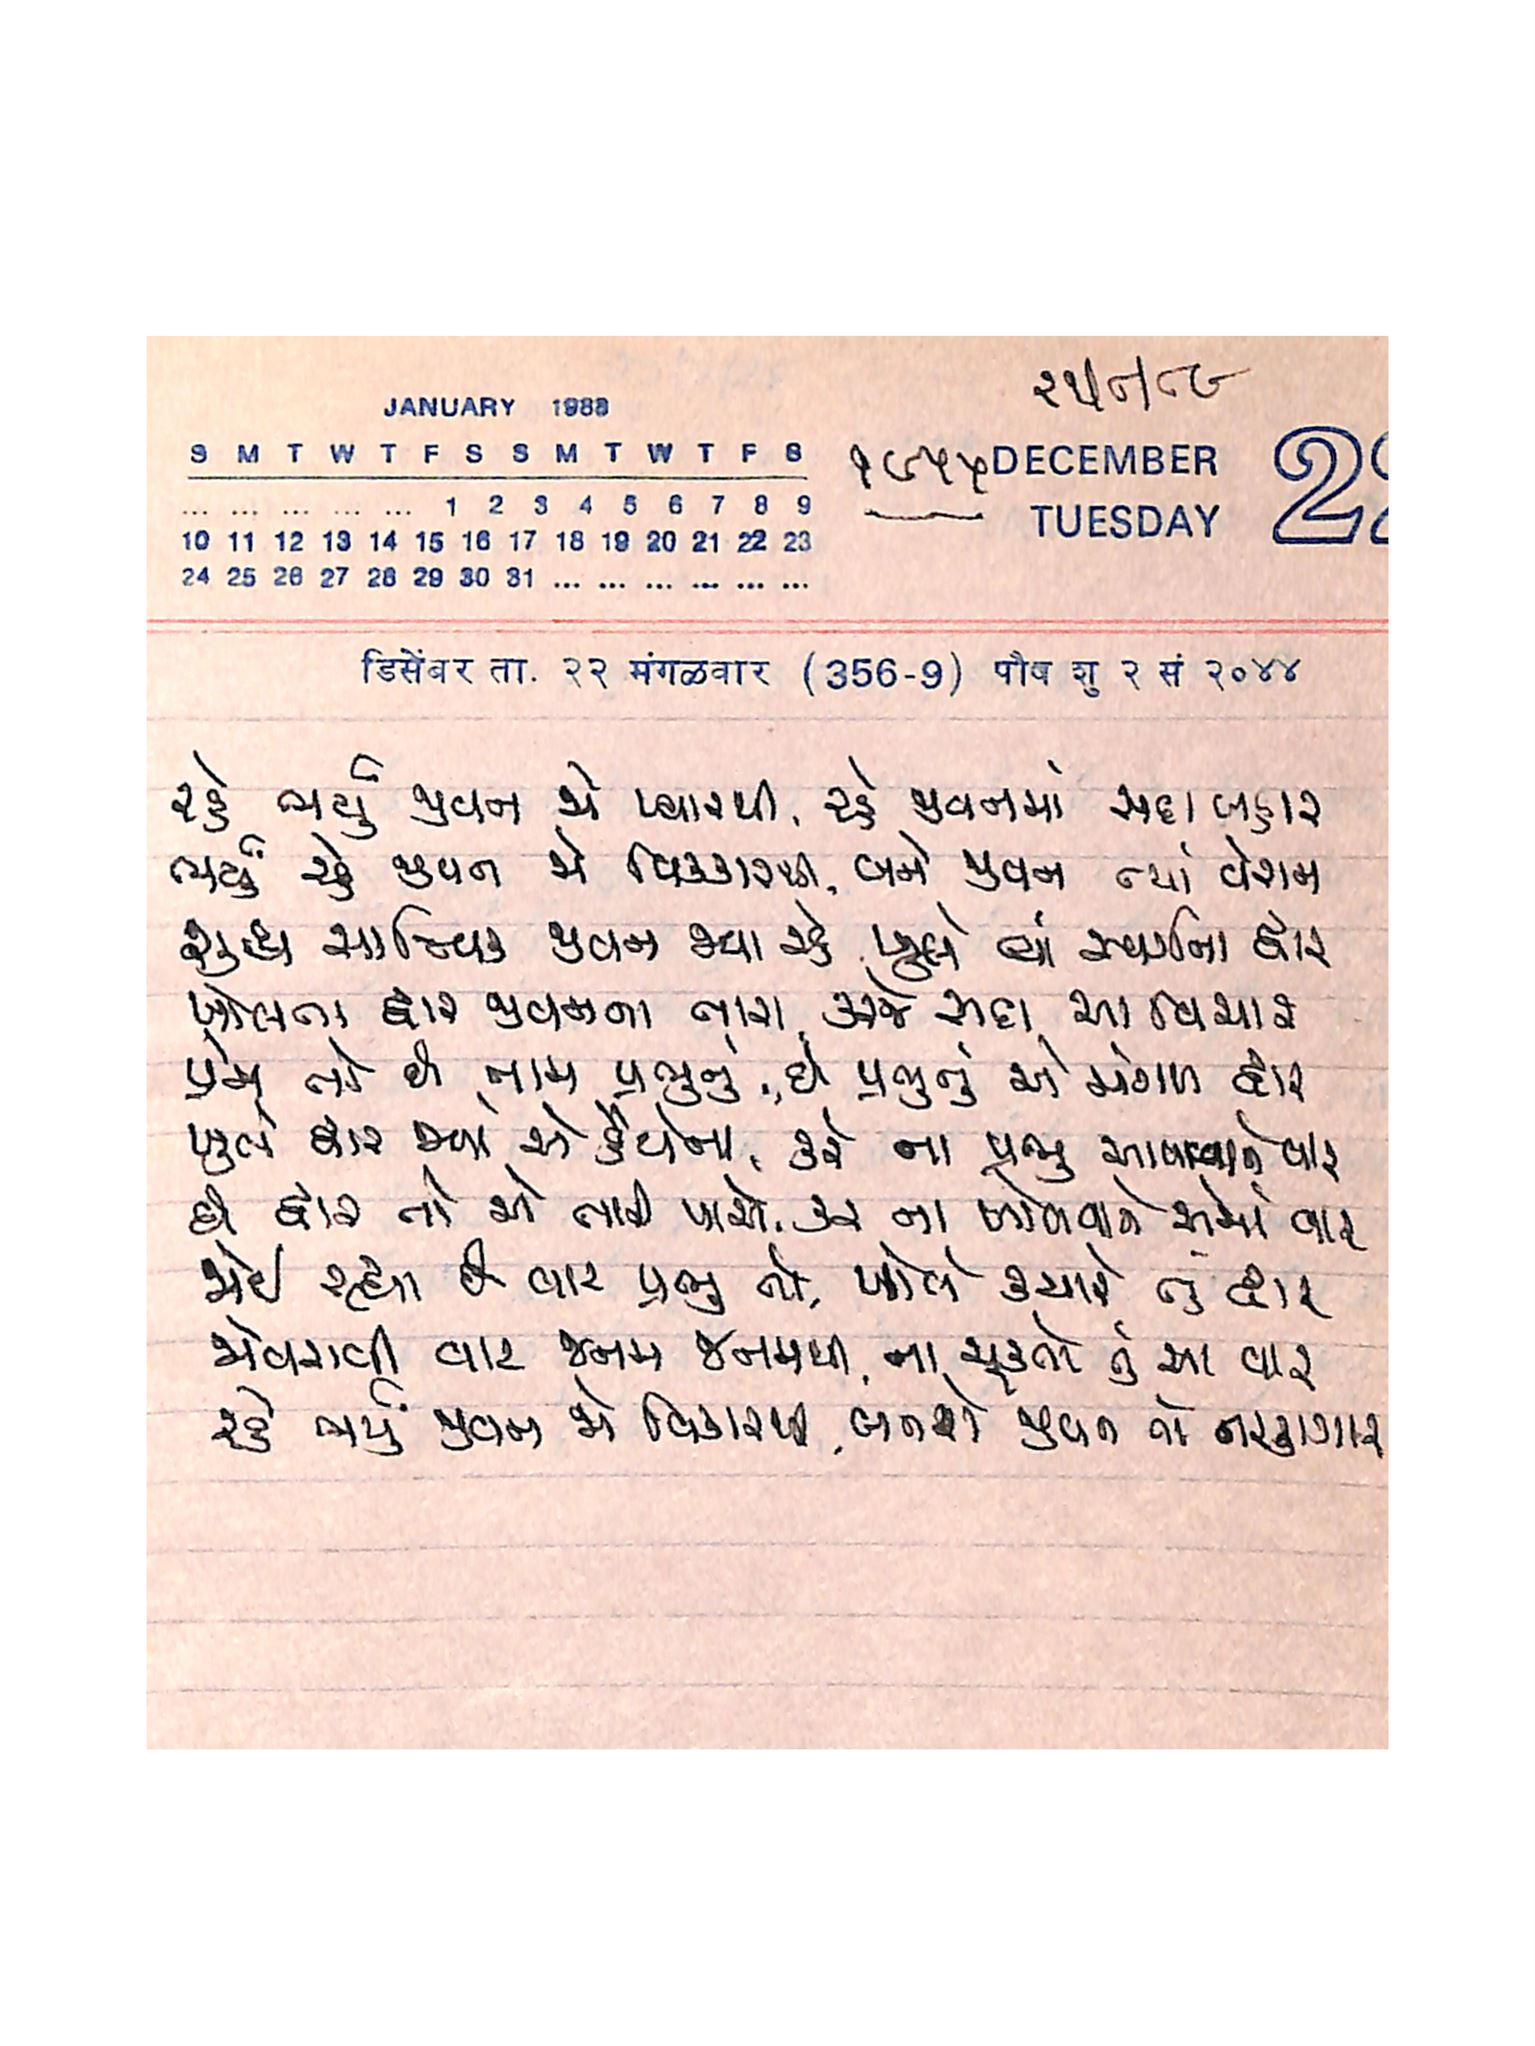 ૨૫/૮/૮૯
JANUARY 1988
S M T W T F S S M T W T F S
... ... ... ... ... 1 2 3 4 5 6 7 8 9
10 11 12 13 14 15 16 17 18 19 20 21 22 23
24 25 26 27 28 29 30 31 ... ... ... ... ... ...
૧૯૫૫ DECEMBER
TUESDAY 22
डिसेंबर ता. २२ मंगळवार (356-9) पौष शु २ सं २०४४
રહે ભર્યું જીવન જો પ્યારથી, રહે જીવનમાં સદા બહાર
ભર્યું રહે જીવન જો વિકારથી, બને જીવન ત્યાં વેરાન
શુદ્ધ સાત્ત્વિક જીવન જ્યા રહે, ખૂલે ત્યાં સ્વર્ગના દ્વાર
ખોલતા દ્વાર જીવનના તારા, કરજે સદા આ વિચાર
પ્રેમ તો છે નામ પ્રભુનું, છે પ્રભુનું એ મંગળ દ્વાર
ખુલે દ્વાર જ્યાં એ હૈયેના, કરે ના પ્રભુ આવવાને વાર
છે દ્વાર તો એ તારી પાસે, કર ના ખોલવાને એમાં વાર
જોઈ રહ્યા છે વાર પ્રભુ તો, ખોલે ક્યારે તું દ્વાર
જોવરાવી વાર જનમ જનમથી, ના ચૂકતો તું આ વાર
રહે ભર્યું જીવન જો વિકારથી, બનશે જીવન તો નરકાગાર